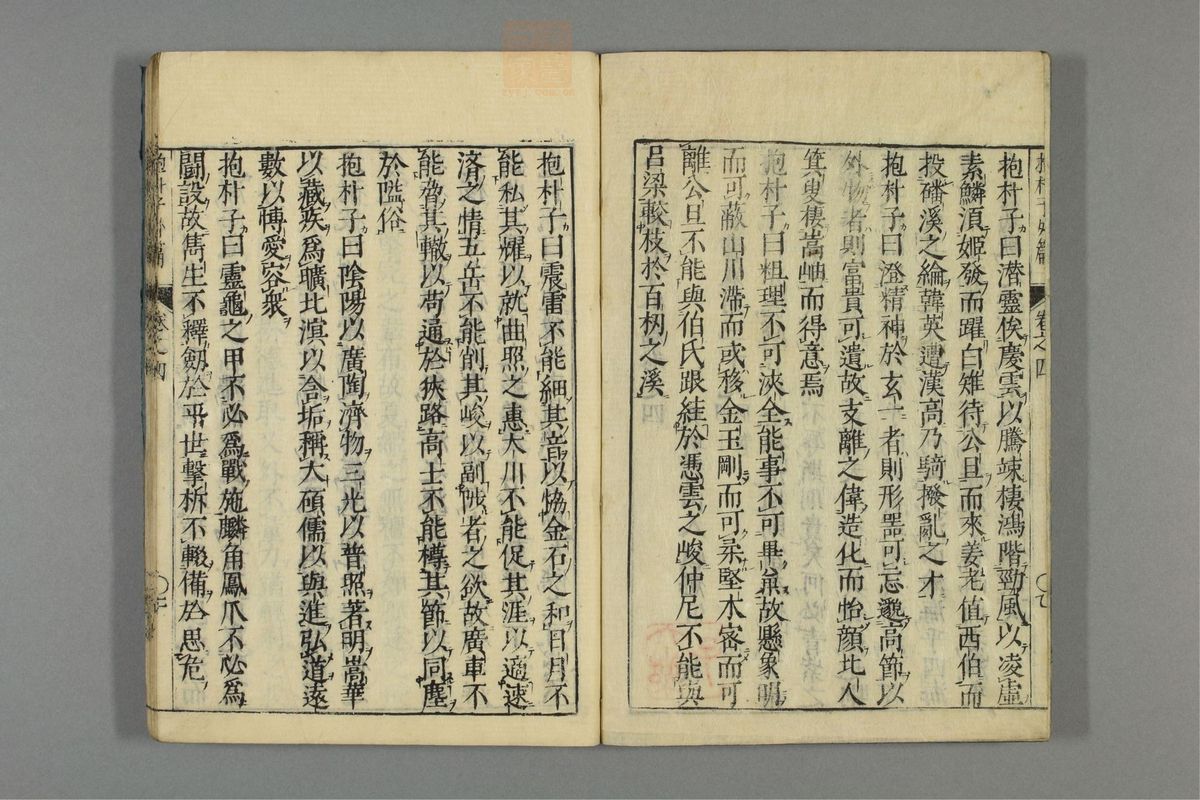 抱朴子外篇 卷之四
抱朴子曰潜靈俟慶雲以騰竦棲鴻階勁風以凌虛
素鱗湏姬發而躍白雉待公旦而來姜老値西伯而
投磻溪之綸韓英遭漢高乃騁撥亂之才
抱朴子曰澄精神於玄一者則形器可忘邈高節以
外物者則富貴可遺故支離之偉造化而怡顔北人
箕叟棲嵩岫而得意焉
抱朴子曰粗理不可浹全能事不可畢兼故懸象明
而可蔽山川滯而或移金玉剛而可柔堅木密而可
離公旦不能與伯氏跟絓於憑雲之峻仲尼不能與
呂梁較枝於百仞之溪
抱朴子曰震雷不能細其音以恊金石之和日月不
能私其燿以就曲照之惠大川不能促其涯以適速
濟之情五岳不能削其峻以副陟者之欲故廣車不
能脅其轍以荷通於狹路高士不能撙其節以同塵
於隘俗
抱朴子曰陰陽以廣陶濟物三光以普照著明嵩華
以藏疾爲曠北溟以含垢稱大碩儒以與進弘道遠
數以博愛容衆
抱朴子曰靈龜之甲不必爲戰施麟角鳳爪不必爲
鬪設故雋生不釋劔於平世擊柝不輟備於思危
抱朴子外篇 卷之四